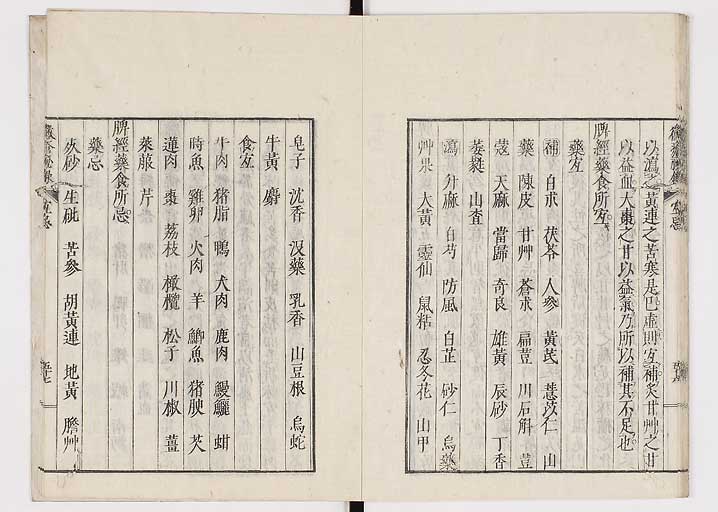 以瀉之黃連之苦寒是巴虛則宜補炙甘艸之甘
以益血大棗之甘以益氣乃所以補其不足也
脾經藥食所宜
藥宜
補 白朮 茯苓 人參 黃芪 薏苡仁 山
藥 陳皮 甘艸 蒼朮 扁荳 川石斛 荳
蔻 天麻 當歸 奇良 雄黃 辰砂 丁香
萎蕤 山査
瀉 升麻 白芍 防風 白芷 砂仁 烏藥
艸果 大黃 靈仙 鼠粘 忍冬花 山甲
皂子 沈香 沒藥 乳香 山豆根 烏蛇
牛黃 麝
食宜
牛肉 猪脂 鴨 犬肉 鹿肉 鰻鱺 蚶
時魚 雞卵 火肉 羊 鯽魚 猪脾 芡
蓮肉 棗 荔枝 橄欖 松子 川椒 薑
萊菔 芹
脾經藥食所忌
藥忌
砂 生砒 苦參 胡黃連 地黃 膽艸